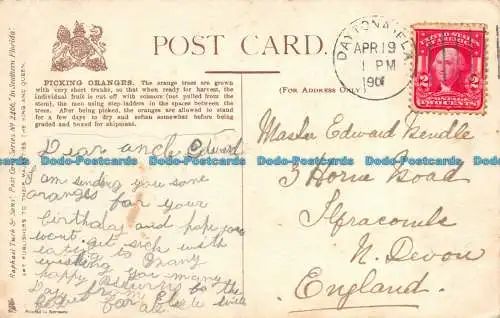 POST CARD.
PICKING ORANGES. The orange trees are grown
with very short trunks, so that when ready for harvest, the
individual fruit is cut off with scissors (not pulled from the
stem), the men using step-ladders in the spaces between the
trees. After being picked, the oranges are allowed to stand
for a few days to dry and soften somewhat before being
graded and boxed for shipment.
(FOR ADDRESS ONLY.)
Raphael Tuck & Sons' Post Card Series No 2426, "In Southern Florida"
ART PUBLISHERS TO THEIR MAJESTIES THE KING AND QUEEN.
Printed in
DAYTONA, FLA.
APR 19
1 PM
190
UNITED STATES
OF AMERICA
2 2
TWO CENTS
Dear uncle Edward
am sending you some
oranges for your
birthday and hope you
wont get sick with
eating to many
wishing you many
happy returns to the
Day from
Master Edward
3 Horne Road
Ilfracombe
N. Devon
England
Dodo-Postcards Dodo-Postcards Dodo-Postcards